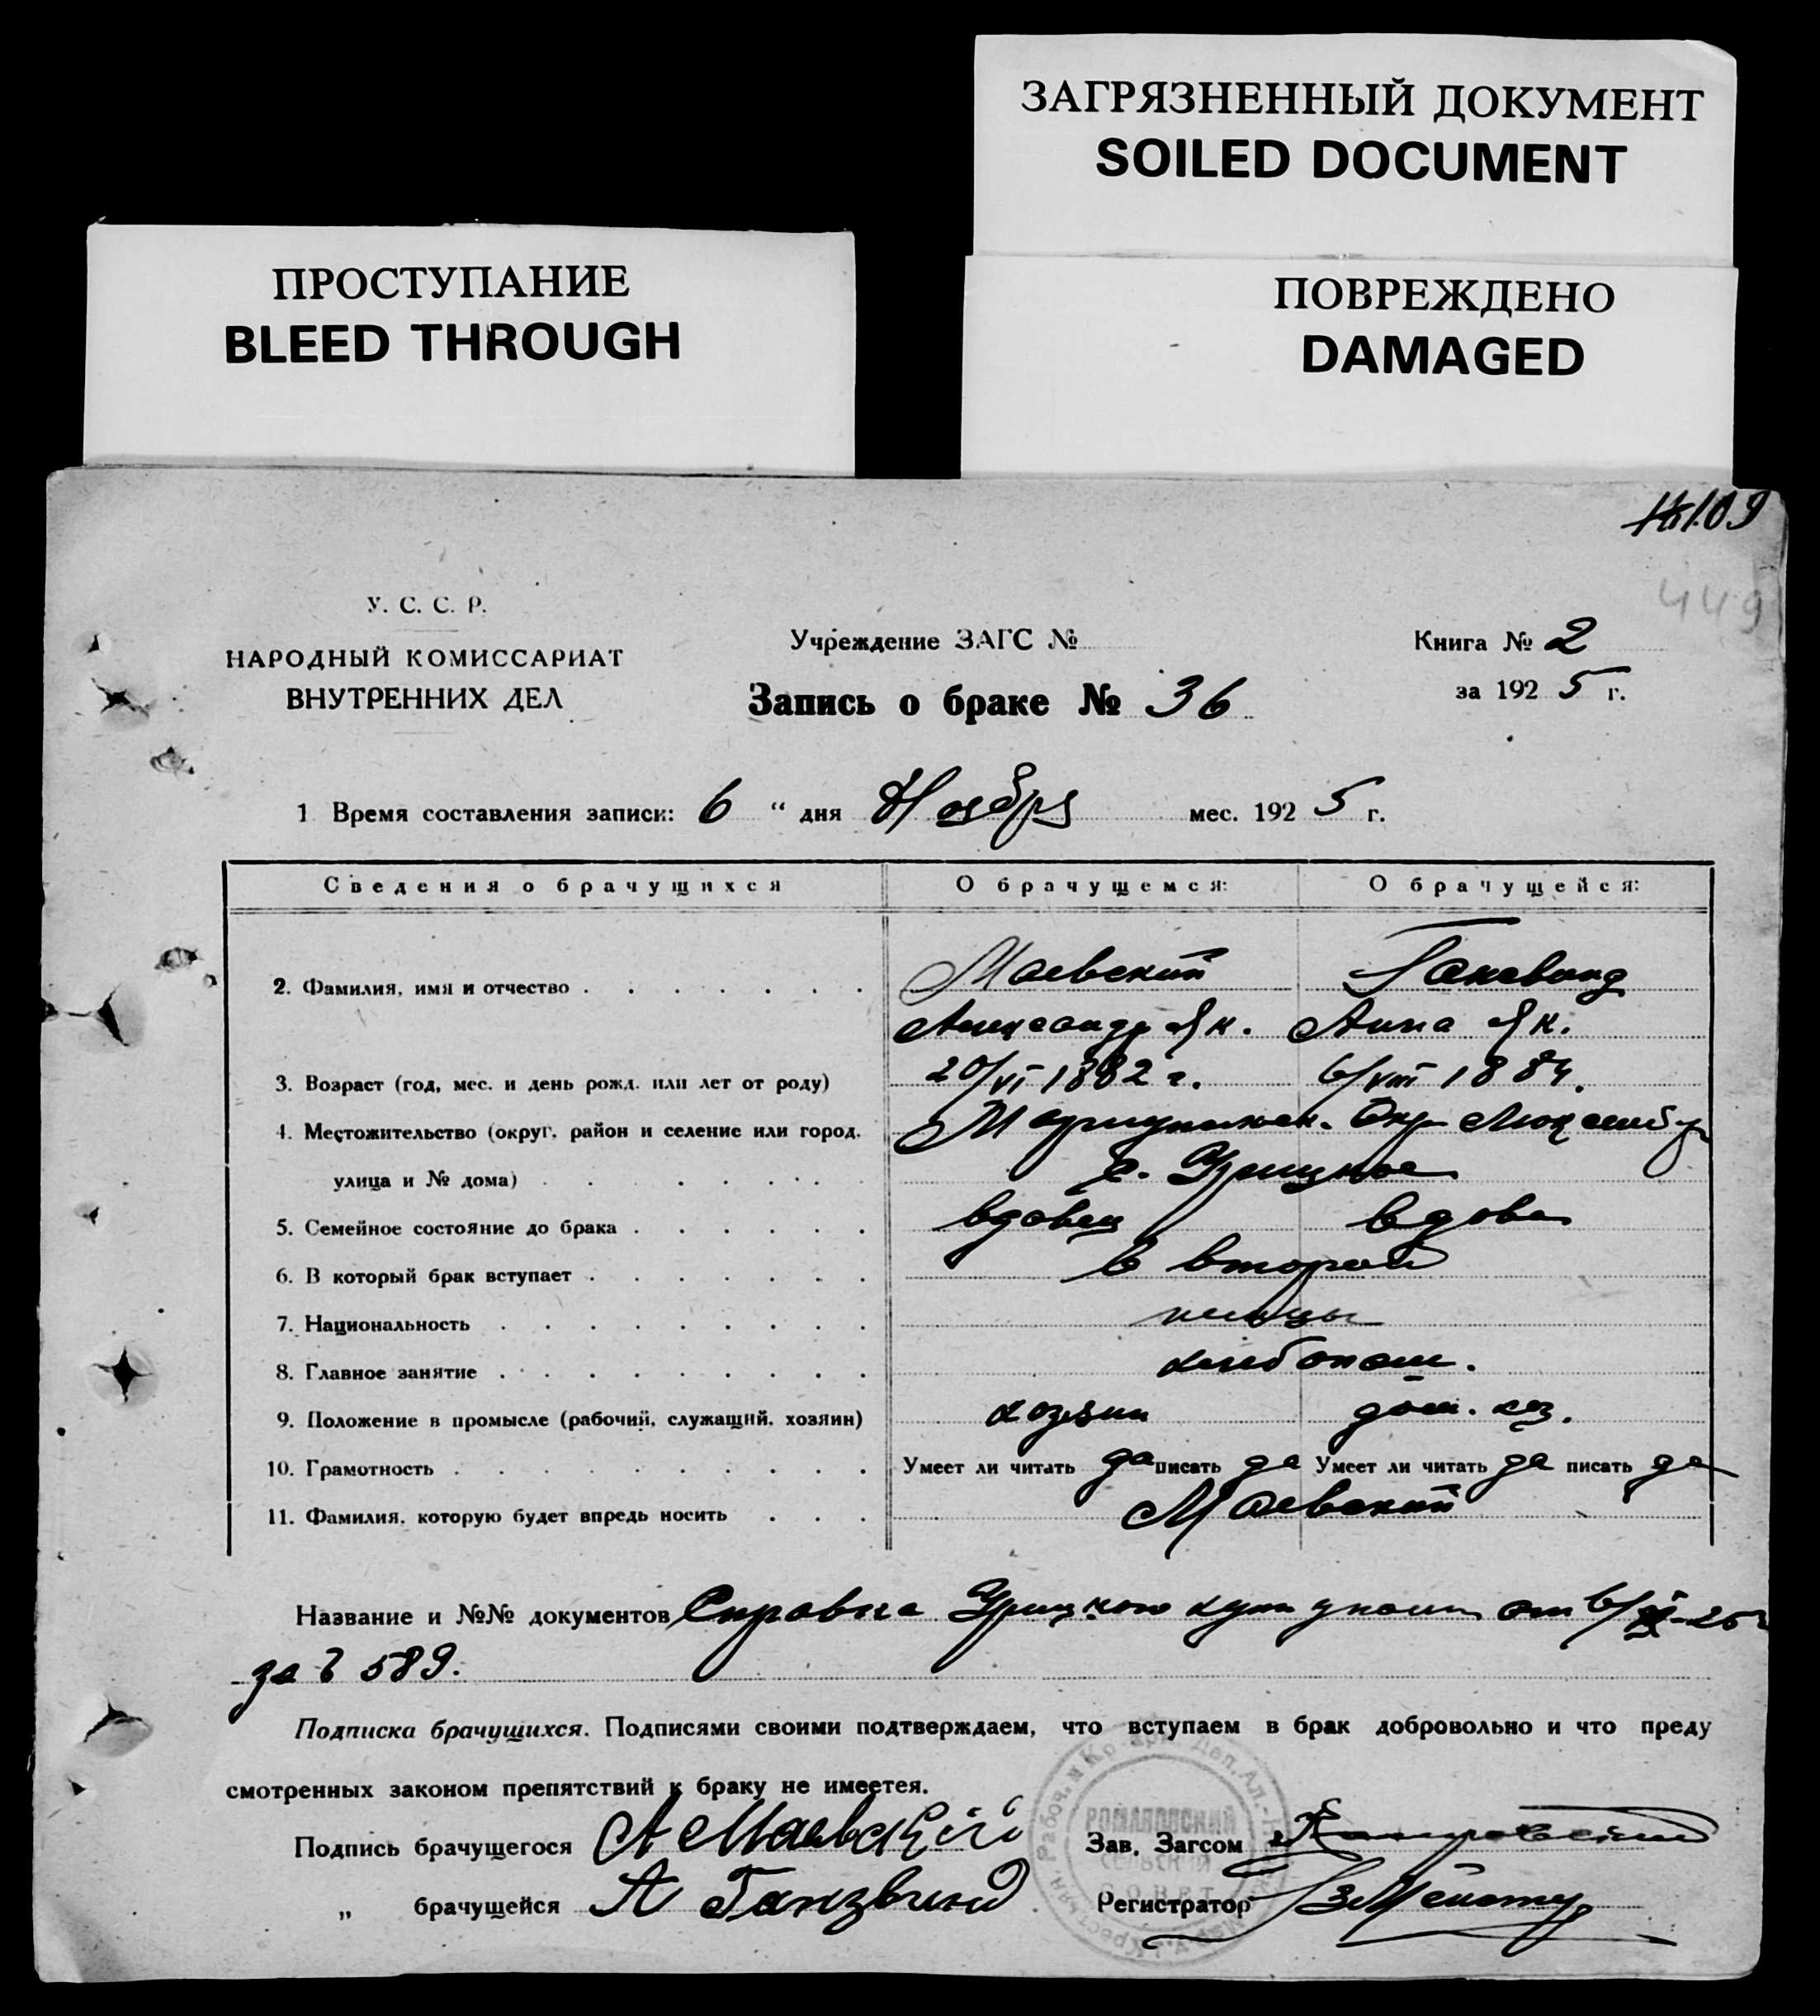 ЗАГРЯЗНЕННЫЙ ДОКУМЕНТ
SOILED DOCUMENT
ПРОСТУПАНИЕ
BLEED THROUGH
ПОВРЕЖДЕНО
DAMAGED
109
449
У. С. С. Р.
НАРОДНЫЙ КОМИССАРИАТ
ВНУТРЕННИХ ДЕЛ
Учреждение ЗАГС №
Запись о браке № 36
Книга № 2
за 1925 г.
1 Время составления записи: 6 “ дня Ноября мес. 1925 г.
Сведения о брачущихся О брачущемся: О брачущейся:
2. Фамилия, имя и отчество Маевский Ганзвинд
Александр Як. Анна Як.
3. Возраст (год, мес. и день рожд. или лет от роду) 20/VI 1882 г. 6/VIII 1884.
4. Местожительство (округ, район и селение или город, Мариупольск. Окр Люксембур
улица и № дома) с. Урицкое
5. Семейное состояние до брака вдовец вдова
6. В который брак вступает в второй
7. Национальность немцы
8. Главное занятие хлебопаш.
9. Положение в промысле (рабочий, служащий, хозяин) хозяин дом. хоз.
10. Грамотность Умеет ли читать да писать да Умеет ли читать да писать да
11. Фамилия, которую будет впредь носить Маевский
Название и №№ документов Справка Урицкого от 6/XI-25 г
за № 589.
Подписка брачущихся. Подписями своими подтверждаем, что вступаем в брак добровольно и что преду
смотренных законом препятствий к браку не имеется.
Подпись брачущегося А Маевскій Зав. Загсом
„ брачущейся А Ганзвинд Регистратор
РОМАНОВСКИЙ
СЕЛЬСКИЙ
СОВЕТ